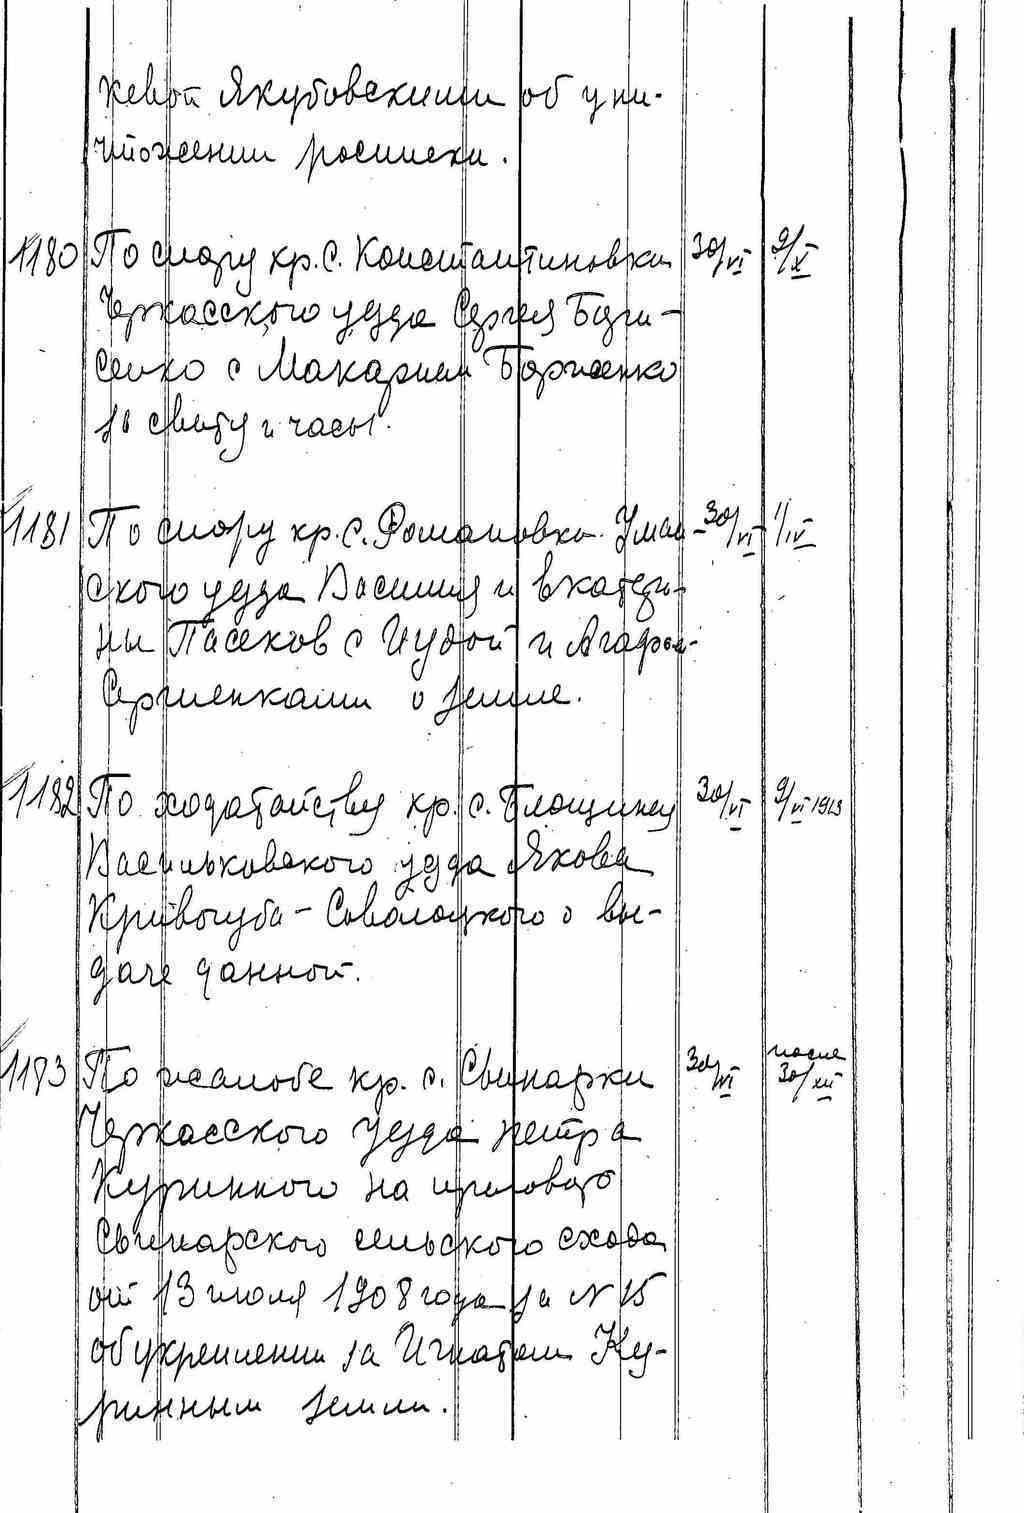 кевой Якубовскими об уни-
чтожении росписки.
1180 По спору кр. с. Константиновки 30/VI 9/X
Черкасского уезда Сергея Бори-
сенко с Макарием Борисенко
за свиту и часы.
1181 По спору кр. с. Романовки Уман- 30/VI 1/IV
ского уезда Василия и Екатери-
ны Пасеков с Иудой и Агафьей
Сергиенками о земле.
1182 По ходатайству кр. с. Блощинец 30/VI 9/VI 1913
Васильковского уезда Якова
Кривогуба-Соволоцкого о вы-
даче данной.
1183 По жалобе кр. с. Свинарки 30/VI после 30/XII
Черкасского уезда Петра
Куринного на приговор
Свинарского сельского схода
от 13 июля 1908 года за N 15
об укреплении за Игнатом Ку-
ринным земли.